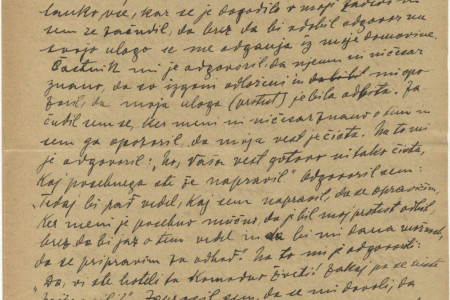 tanko vse, kar se je dogodilo v moji zadevi in
sem se začudil, da brez da bi dobil odgovor na
svojo vlogo se me odganja iz moje domovine.
Častnik mi je odgovoril da njemu ni ničesar
znano, da so izgoni odloženi in mi
da moja vloga (protest) je bila odbita. Za
čudil sem se, ker meni ni ničesar znano o tem in
sem ga opozoril, da moja vest je čista. Na to mi
je odgovoril: "No, Vaša vest gotovo ni tako čista,
kaj posebnega ste že napravil." Odgovoril sem:
"Tedaj bi pač vedel, kaj sem napravil, da se opravičim,
ker meni je posebno mučno, da je bil moj protest odbit
brez da bi jaz o tem vedel in da bi mi dana
da se pripravim za odhod. Na to mi je odgovoril:
"Da, vi ste hoteli ta komodno živeti! Zakaj pa se niste
Zaprosil sem, da se mi dovoli, da